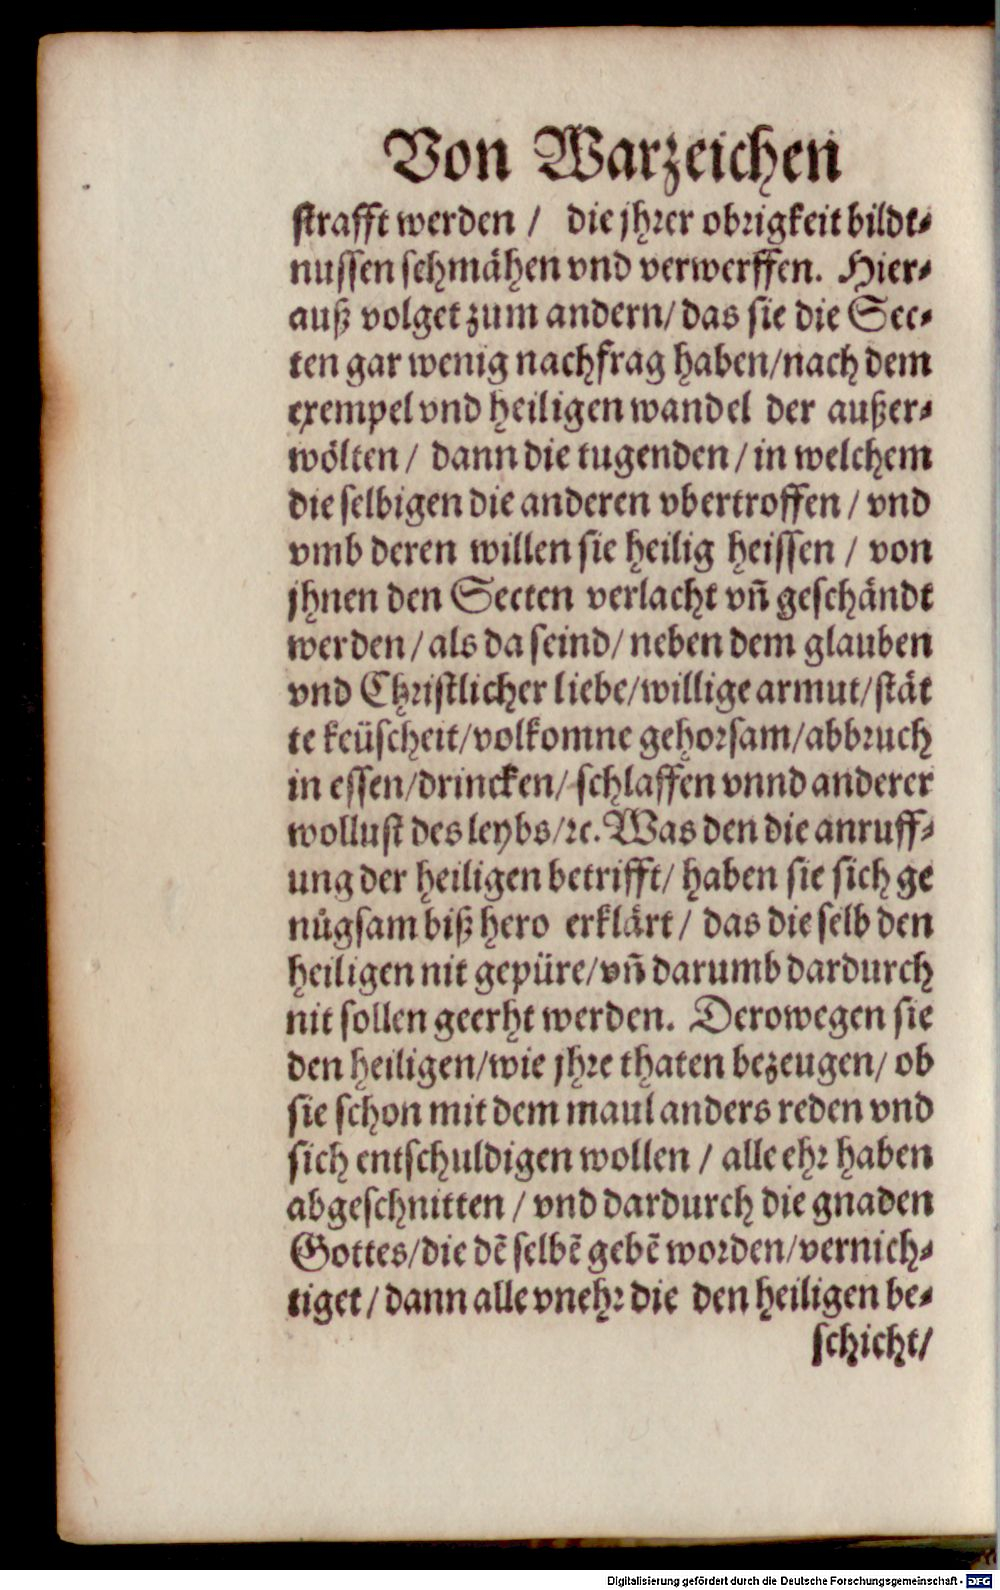 Von Warzeichen
strafft werden / die jhrer obrigkeit bildt-
nussen schmähen vnd verwerffen. Hier-
auß volget zum andern/ das sie die Sec-
ten gar wenig nachfrag haben/nach dem
exempel vnd heiligen wandel der außer-
wölten / dann die tugenden / in welchem
die selbigen die anderen vbertroffen / vnd
vmb deren willen sie heilig heissen / von
jhnen den Secten verlacht vñ geschändt
werden / als da seind/ neben dem glauben
vnd Christlicher liebe/willige armut/stät
te keüscheit/volkomne gehorsam/abbruch
in essen/drincken/ schlaffen vnnd anderer
wollust des leybs/ꝛc. Was den die anruff-
ung der heiligen betrifft/ haben sie sich ge
nůgsam biß hero erklärt / das die selb den
heiligen nit gepüre/vñ darumb dardurch
nit sollen geerht werden. Derowegen sie
den heiligen/wie jhre thaten bezeugen/ ob
sie schon mit dem maul anders reden vnd
sich entschuldigen wollen / alle ehr haben
abgeschnitten / vnd dardurch die gnaden
Gottes/die dẽ selbẽ gebẽ worden/vernich-
tiget / dann alle vnehr die den heiligen be-
schicht/
Digitalisierung gefördert durch die Deutsche Forschungsgemeinschaft - DFG